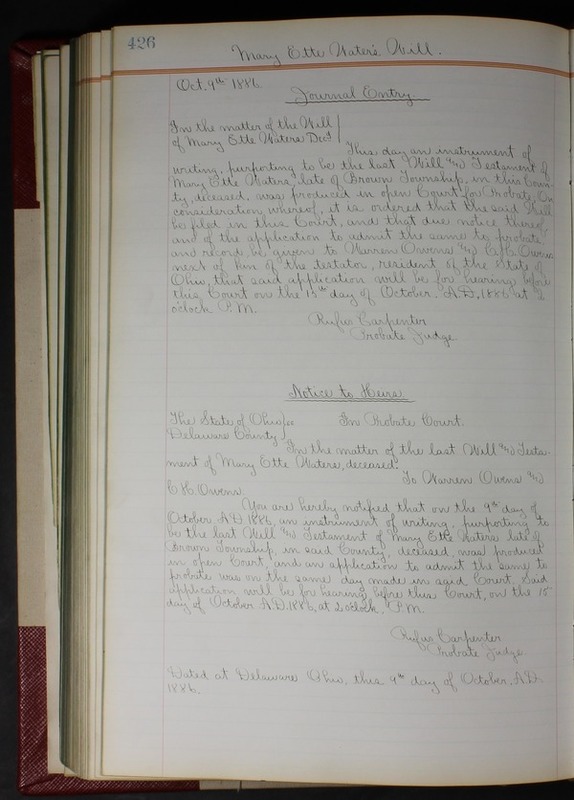 426
Mary Ette Water's Will.
Oct. 9th 1886.
Journal Entry.
In the matter of the Will
of Mary Ette Waters Decd
This day an instrument of
writing, purporting to be the last Will and Testament of
Mary Ette Waters, late of Brown Township, in this Coun-
ty, deceased, was produced in open Court for Probate. On
consideration whereof, it is ordered that the said Will
be filed in this Court, and that due notice thereof,
and of the application to admit the same to probate
and record, be given to Warren Owens and C. H. Owens
next of kin of the testator, resident of the State of
Ohio, that said application will be for hearing before
this Court on the 15th day of October, A.D., 1886 at 2
o'clock P.M.
Rufus Carpenter
Probate Judge
Notice to Heirs.
The State of Ohio ss In Probate Court.
Delaware County
In the matter of the last Will and Testa-
ment of Mary Ette Waters, deceased.
To Warren Owens and
C. H. Owens.
You are hereby notified that on the 9th day of
October A.D. 1886, an instrument of writing, purporting to
be the last Will and Testament of Mary Ette Waters late of
Brown Township, in said County, deceased, was produced
in open Court, and an application to admit the same to
probate was on the same day made in said Court. Said
application will be for hearing before this Court, on the 15
day of October A.D. 1886, at 2 o'clock, P.M.
Rufus Carpenter
Probate Judge.
Dated at Delaware Ohio, this 9th day of October, A.D.
1886.